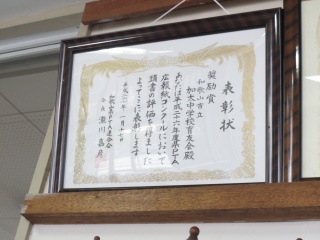 表彰状
奨励賞
和歌山市立
加太中学校育友会殿
あなたは平成二十六年度県PTA
広報紙コンクールにおいて
頭書の評価を得ました
よってここに表彰します
平成二十七年一月十七日
和歌山県PTA連合会
会長